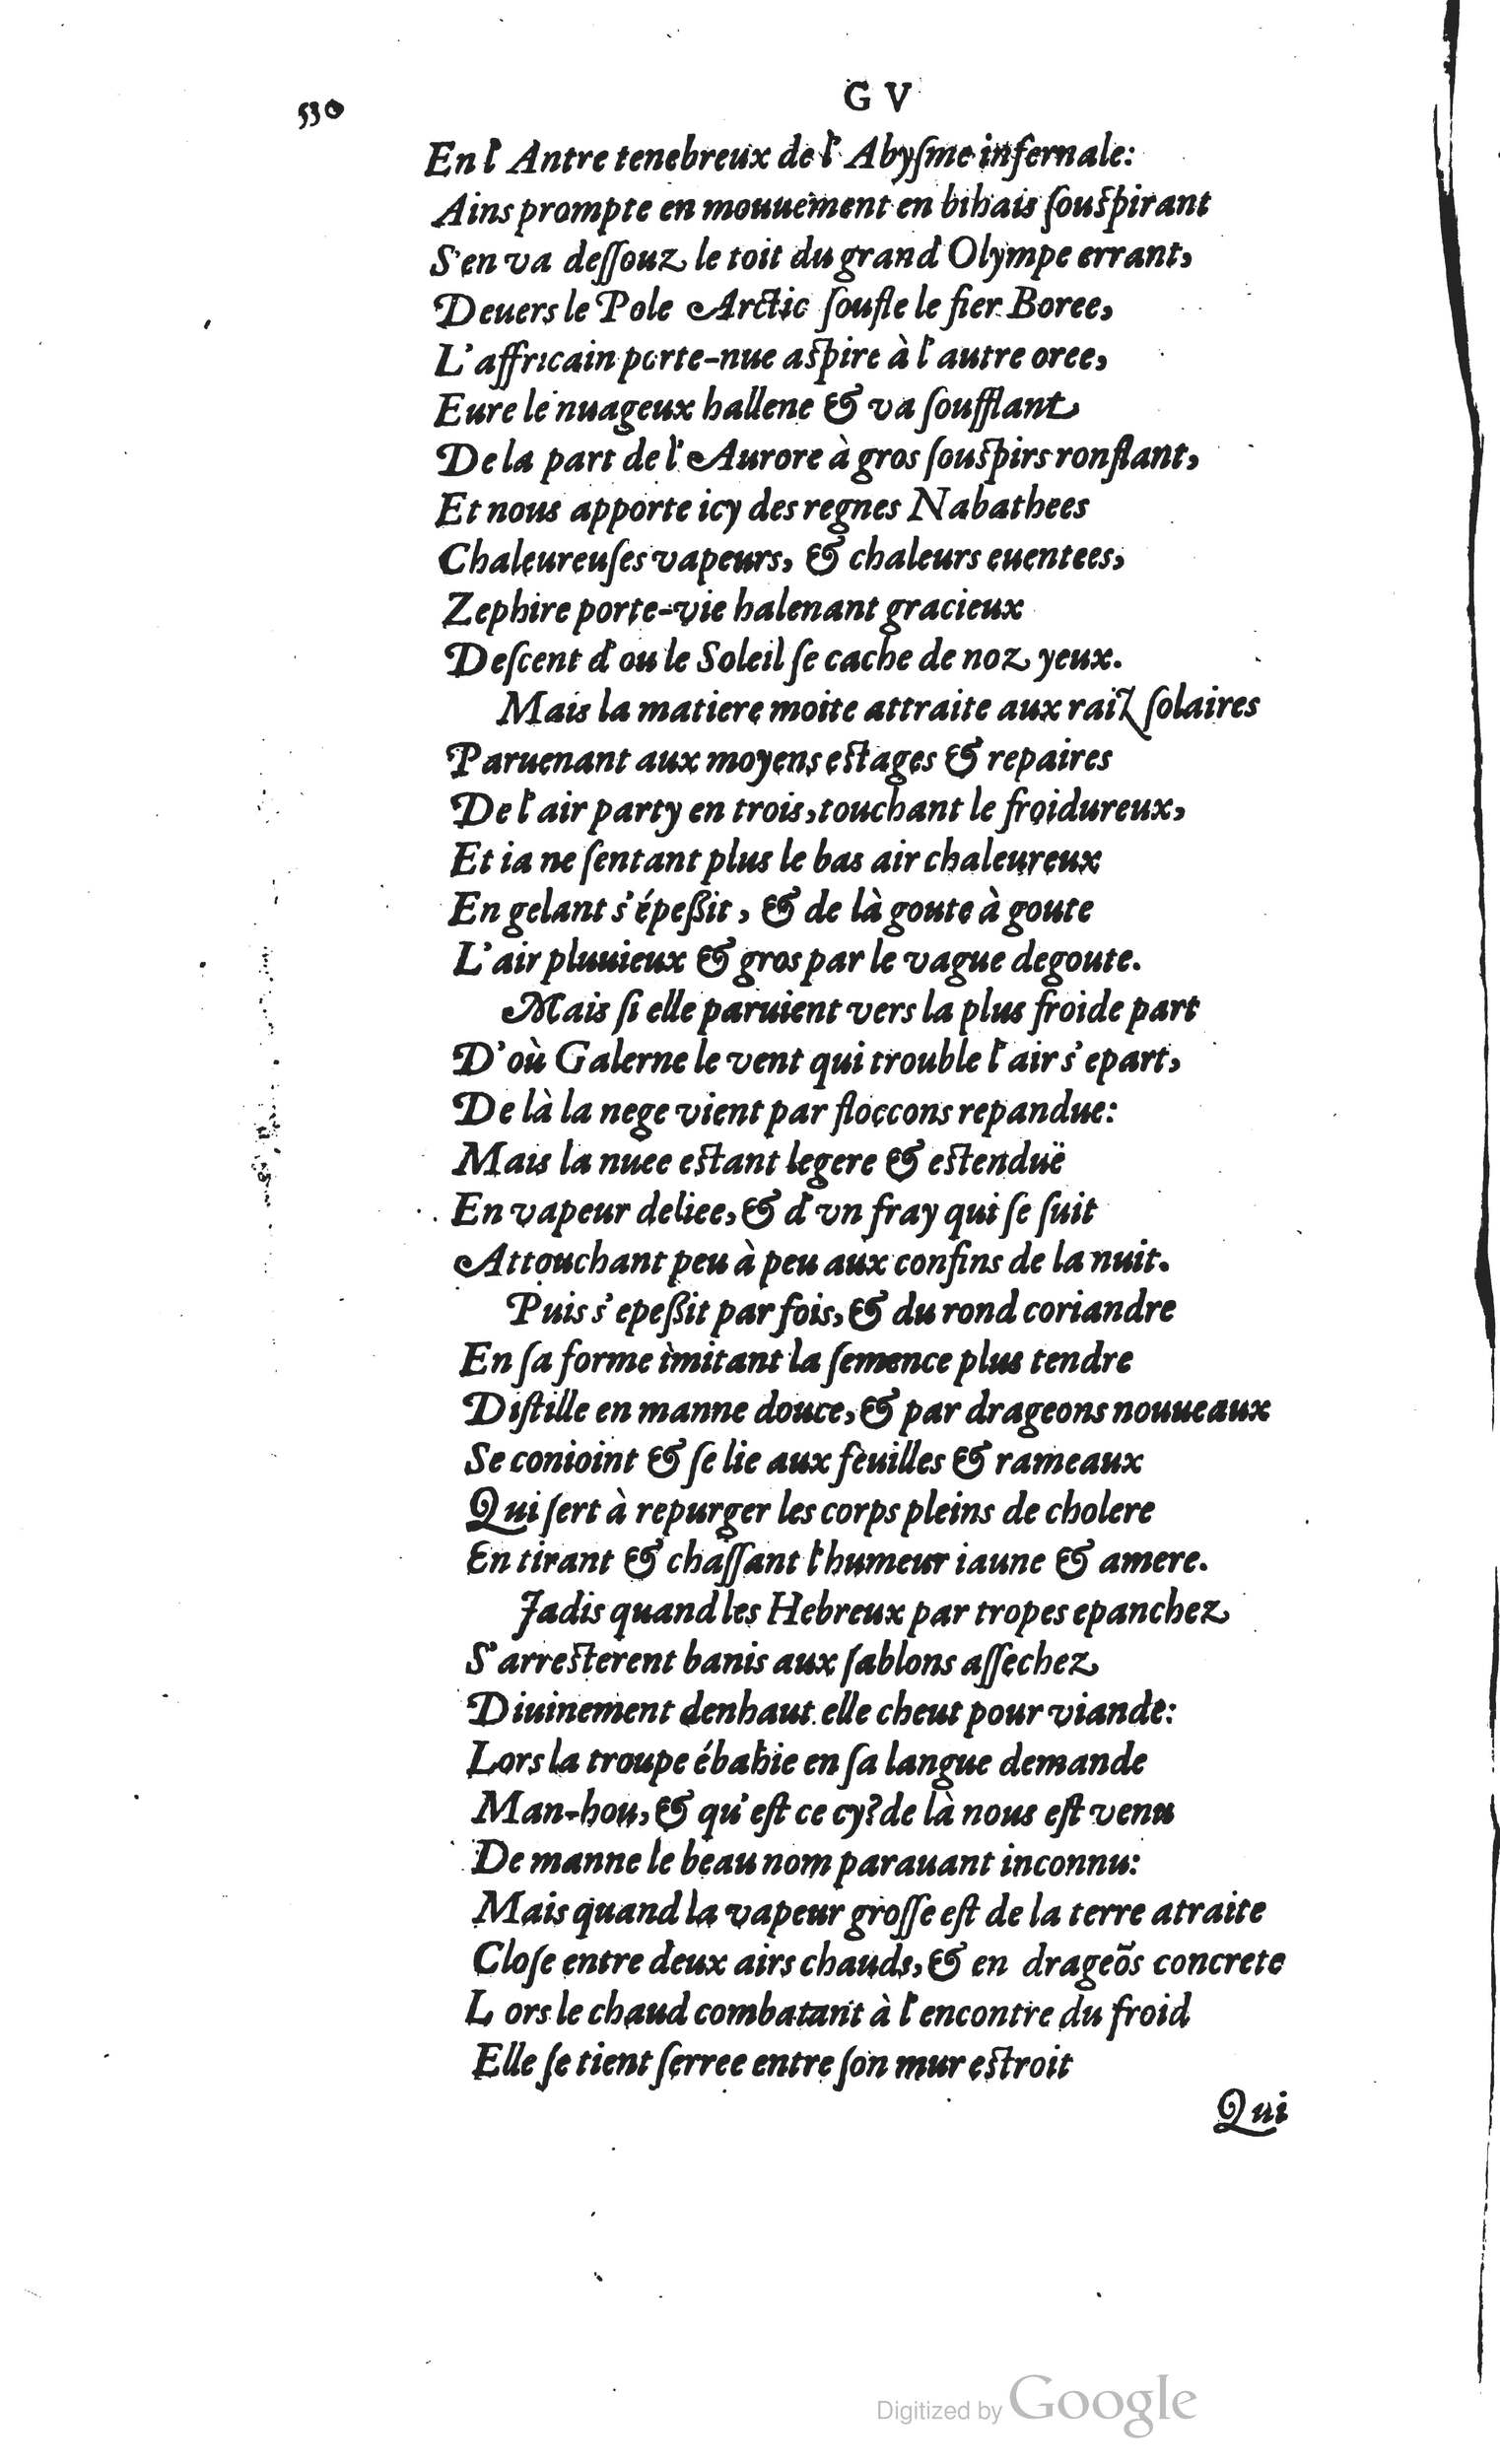 530
G V
En l'Antre tenebreux de l'Abyſme infernale:
Ains prompte en mouuement en bihais ſouſpirant
S'en va deſſouz le toit du grand Olympe errant,
Deuers le Pole Arctic ſoufle le fier Boree,
L'affricain porte-nue aſpire à l'autre oree,
Eure le nuageux hallene & va ſoufflant
De la part de l'Aurore à gros ſouſpirs ronflant,
Et nous apporte icy des regnes Nabathees
Chaleureuſes vapeurs, & chaleurs euentees,
Zephire porte-vie halenant gracieux
Deſcent d'ou le Soleil ſe cache de noz yeux.
Mais la matiere moite attraite aux raiz ſolaires
Paruenant aux moyens eſtages & repaires
De l'air party en trois, touchant le froidureux,
Et ia ne ſentant plus le bas air chaleureux
En gelant s'épeßit, & de là goute à goute
L'air pluuieux & gros par le vague degoute.
Mais ſi elle paruient vers la plus froide part
D'où Galerne le vent qui trouble l'air s'epart,
De là la nege vient par floccons repandue:
Mais la nuee eſtant legere & eſtenduë
En vapeur deliee, & d'vn fray qui ſe ſuit
Attouchant peu à peu aux confins de la nuit.
Puis s'epeßit par fois, & du rond coriandre
En ſa forme imitant la ſemence plus tendre
Diſtille en manne douce, & par drageons nouueaux
Se conioint & ſe lie aux feuilles & rameaux
Qui ſert à repurger les corps pleins de cholere
En tirant & chaſſant l'humeur iaune & amere.
Jadis quand les Hebreux par tropes epanchez
S'arreſterent banis aux ſablons aſſechez
Diuinement denhaut elle cheut pour viande:
Lors la troupe ébahie en ſa langue demande
Man-hou, & qu'eſt ce cy? de là nous eſt venu
De manne le beau nom parauant inconnu:
Mais quand la vapeur groſſe eſt de la terre atraite
Cloſe entre deux airs chauds, & en drageõs concrete
Lors le chaud combatant à l'encontre du froid
Elle ſe tient ſerree entre ſon mur eſtroit
Qui
Digitized by Google